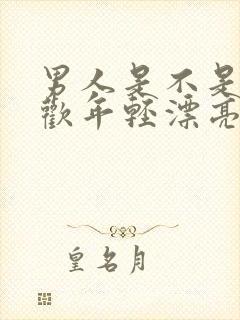 男人是不是
歡年輕漂亮
皇名月